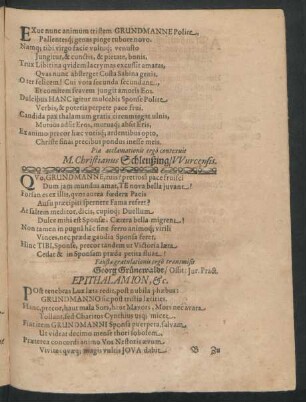 EXue nunc animum tristem GRUNDMANNE Polite
Pallentesq; genas pinge rubore novo.
Namq; tibi virgo facie vultuq; venusto
Jungitur, & constis, & pietate, bonis.
Trux Libitina qvidem lacrymas excussit amatas,
Quas nunc absterget Casta Sabina genis.
O ter felicem! Cui vota secunda secundant,
Et comitem stravent jungit amoris Eros.
Dulcibus HANC igitur mulcebis Sponse Polite
Verbis, & poteris perpete pace frui.
Candida pax thalamum gratis circumtegat ulnis,
Mutuus adsit Eros, mutuus absit Eris.
Ex animo precor hæc votisq; ardentibus opto,
Christe sinas precibus pondus inesse meis.
Pia acclamatione ergò contexuit
M. Christianus Schleusing/VVurcensis.
QVid, GRUNDMANNE, juvat pretiosâ pace fruisci
Dum jam mundus amat, TE nova bella juvant
Forsan.es ex illis, quêis aurea foedera Pacis
Ausis præcipiti spernere fama refert?
At saltem meditor, dicis, cupioq; Duellum.
Dulce mihi est Sponsæ. Cætera bella migrent.
Non tamen in pugnâ hâc sine ferro animoq; virili
Vinces, nec prædæ gaudia Sponsa feret.
Hinc TIBI, Sponse, precor tandem ut Victoria læta
Cedat & in Sponsam præda petita fluat.
Faustæ gratulationis ergò transmisit
Georg Grünewaldt, Ossit: Jur. Pract.
EPITHALAMION, &c.
POst tenebras lux læta redit, post nubila phœbus:
GRUNDMANNO sic post tristia lætities.
Hanc, precor, haut mala Sors, haut blæsors, Mors nec amara
Tollant, sed Charitus Cynthius usq; micet.
Fiat item GRUNDMANNI Sponsa puerpera, salvam
Ut videat decimo mense thori sobolem.
Præterea concordi animo Vos Nestoris ævum
Vivite: quæq; magis vultis JOVA dabit.
B Zu